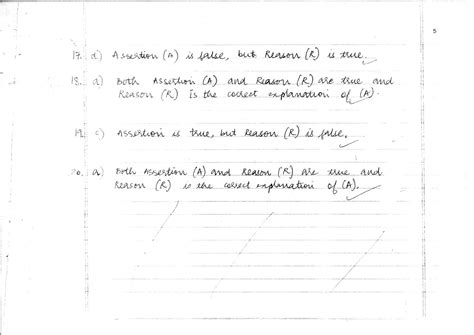 5
17. d) Assertion (A) is false, but Reason (R) is true.
18. a) Both Assertion (A) and Reason (R) are true and
Reason (R) Is the correct explanation of (A).
19. c) Assertion is true, but Reason (R) is false.
20. a) Both Assertion (A) and Reason (R) are true and
Reason (R) is the correct explanation of (A).